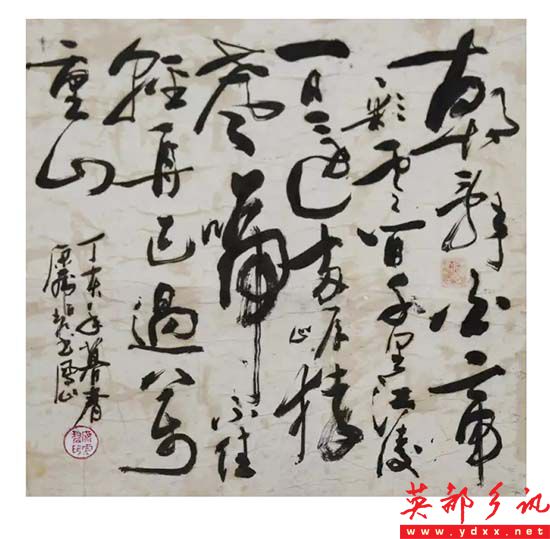 朝辭白帝
彩雲間千里江陵
一日還兩岸猿
聲啼不住
輕舟已過萬
重山
丁亥年暮春
英都乡讯
www.ydxx.net